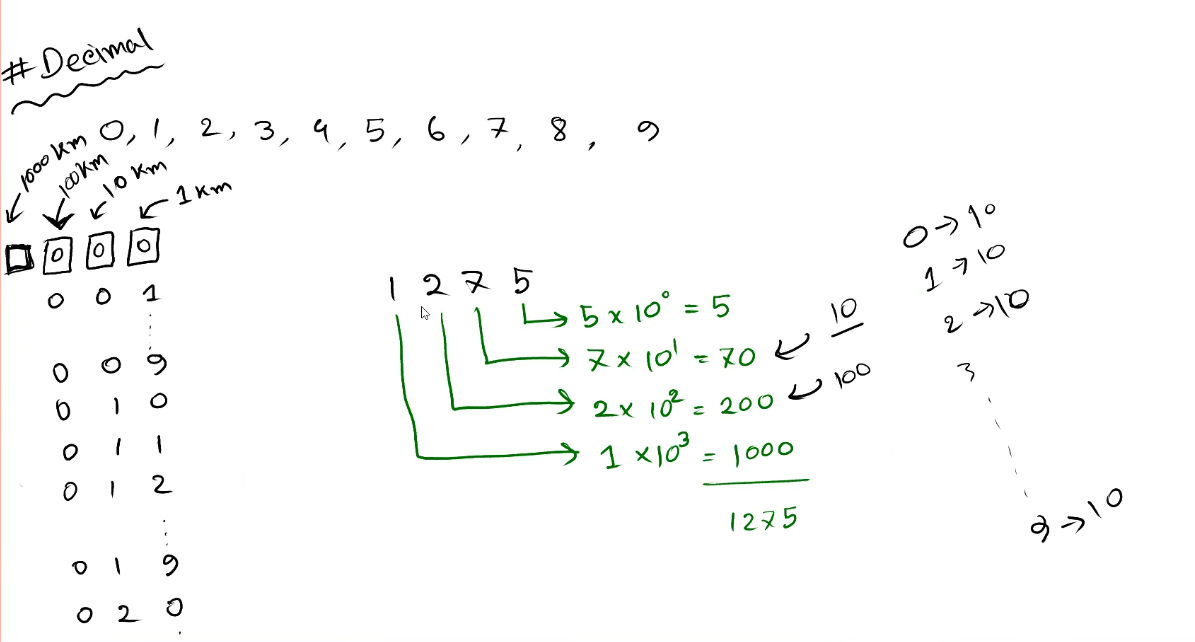 # Decimal
0, 1, 2, 3, 4, 5, 6, 7, 8, 9
1000 km
100 km
10 km
1 km
0 0 0
0 0 1
0 0 9
0 1 0
0 1 1
0 1 2
0 1 9
0 2 0
1 2 7 5
5 × 10⁰ = 5
7 × 10¹ = 70 ← 10
2 × 10² = 200 ← 100
1 × 10³ = 1000
1275
0 → 10
1 → 10
2 → 10
3
9 → 10